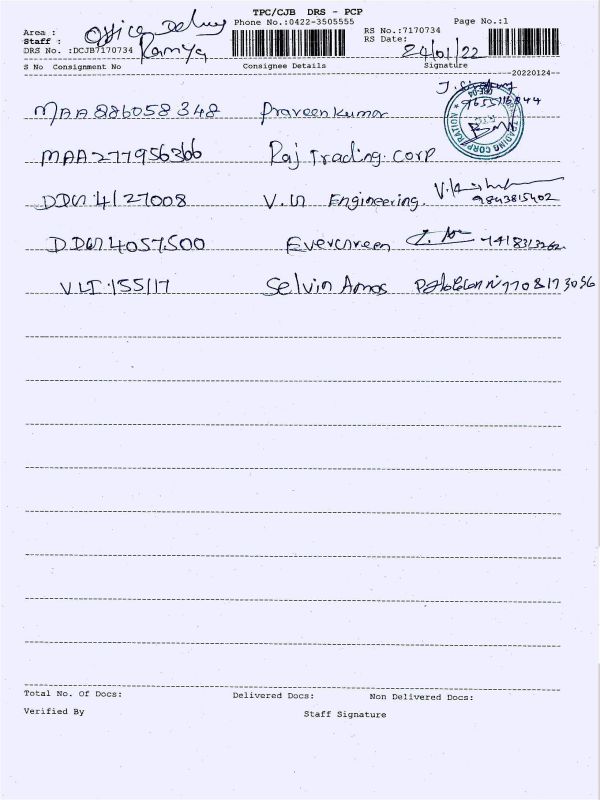 TPC/CJB DRS - PCP
Area : Office Delivery Phone No.:0422-3505555 RS No.:7170734 Page No.:1
Staff : Ramya RS Date: 24/01/22
DRS No. :DCJB7170734
S No Consignment No Consignee Details Signature
20220124
MAA 886058348 Praveenkumar
MAA277956366 Raj Trading Corp
TRADING CORP
DDG 4127008 V.G Engineering. 9843815402
DDG 4057500 Evergreen
VLI 155117 Selvin Amos
Total No. Of Docs: Delivered Docs: Non Delivered Docs:
Verified By Staff Signature